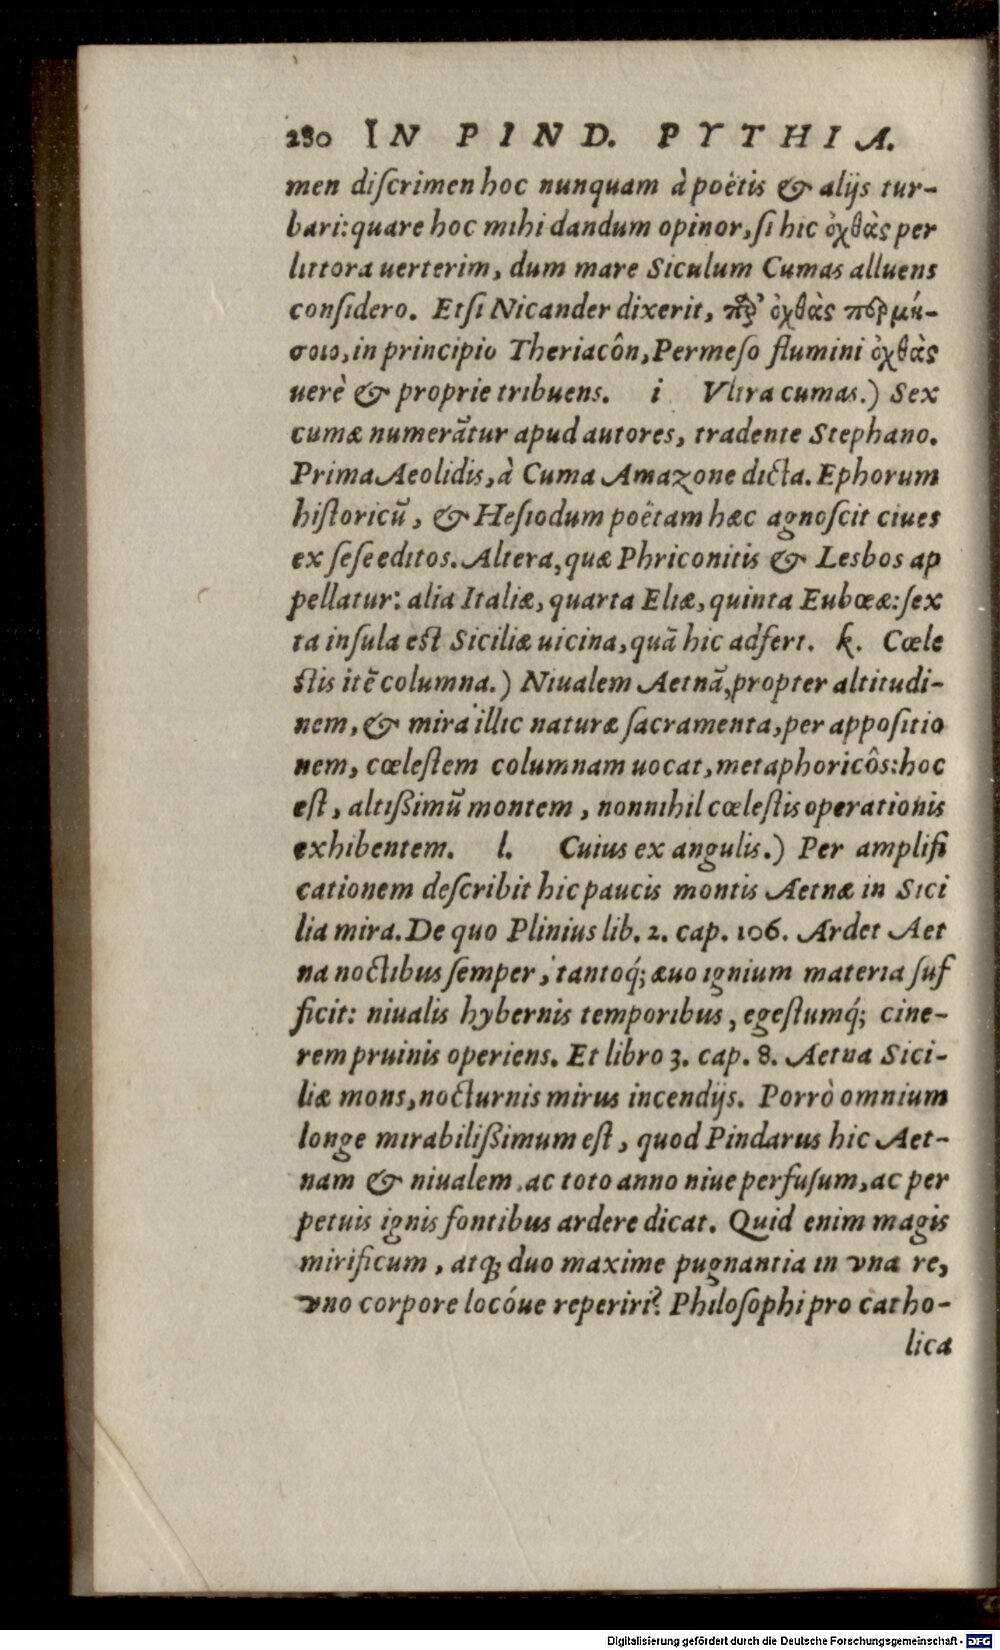 280 IN PIND. PYTHIA.
men diſcrimen hoc nunquam à poëtis & alijs tur-
bari: quare hoc mihi dandum opinor, ſi hic ὀχθὰς per
littora uerterim, dum mare Siculum Cumas alluens
conſidero. Etſi Nicander dixerit, ὀχθὰς περμή-
σοιο, in principio Theriacôn, Permeſo flumini ὀχθὰς
uerè & proprie tribuens. i Vltra cumas.) Sex
cumæ numerãtur apud autores, tradente Stephano.
Prima Aeolidis, à Cuma Amazone dicta. Ephorum
hiſtoricũ, & Heſiodum poêtam hæc agnoſcit ciues
ex ſeſe editos. Altera, quæ Phriconitis & Lesbos ap
pellatur: alia Italiæ, quarta Eliæ, quinta Eubœæ: ſex
ta inſula eſt Siciliæ uicina, quã hic adfert. k. Cœle
ſtis itẽ columna.) Niualem Aetnã, propter altitudi-
nem, & mira illic naturæ ſacramenta, per appoſitio
nem, cœleſtem columnam uocat, metaphoricôs: hoc
eſt, altißimũ montem, nonnihil cœleſtis operationis
exhibentem. l. Cuius ex angulis.) Per amplifi
cationem deſcribit hic paucis montis Aetnæ in Sici
lia mira. De quo Plinius lib. 2. cap. 106. Ardet Aet
na noctibus ſemper, tantoq́; æuo ignium materia ſuf
ficit: niualis hybernis temporibus, egeſtumq́; cine-
rem pruinis operiens. Et libro 3. cap. 8. Aetna Sici-
liæ mons, nocturnis mirus incendijs. Porrò omnium
longe mirabilißimum eſt, quod Pindarus hic Aet-
nam & niualem, ac toto anno niue perfuſum, ac per
petuis ignis fontibus ardere dicat. Quid enim magis
mirificum, atq; duo maxime pugnantia in vna re,
vno corpore locóue reperiri? Philoſophi pro catho-
lica
Digitalisierung gefördert durch die Deutsche Forschungsgemeinschaft - DFG